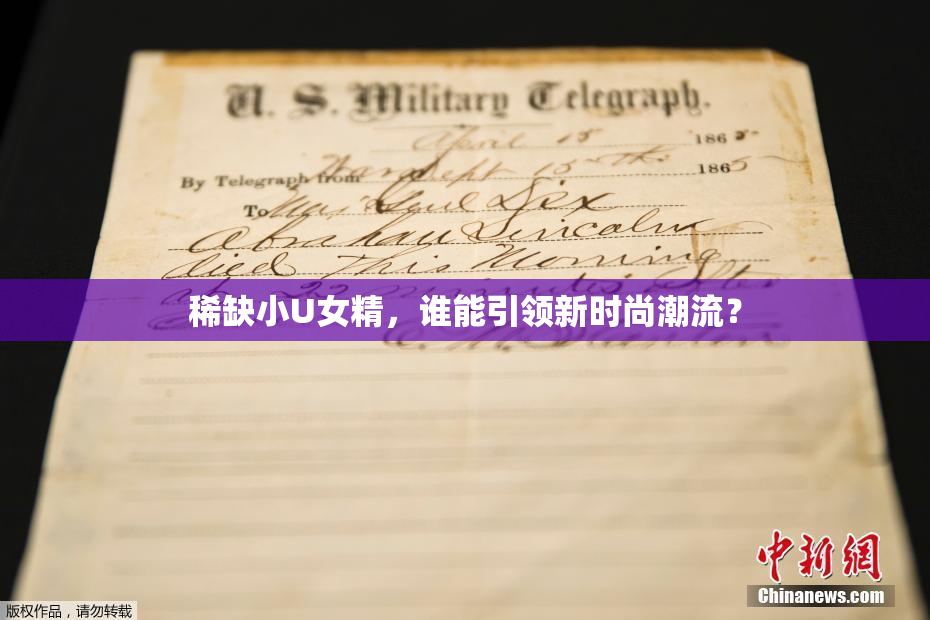 U. S. Military Telegraph.
April 15 1865
By Telegraph from War Dept 15th 1865
To Maj Genl Dix
Abraham Lincoln
died This Morning
at 22 minutes after
稀缺小U女精，谁能引领新时尚潮流？
E. M. Stanton
中新网
Chinanews.com
版权作品，请勿转载